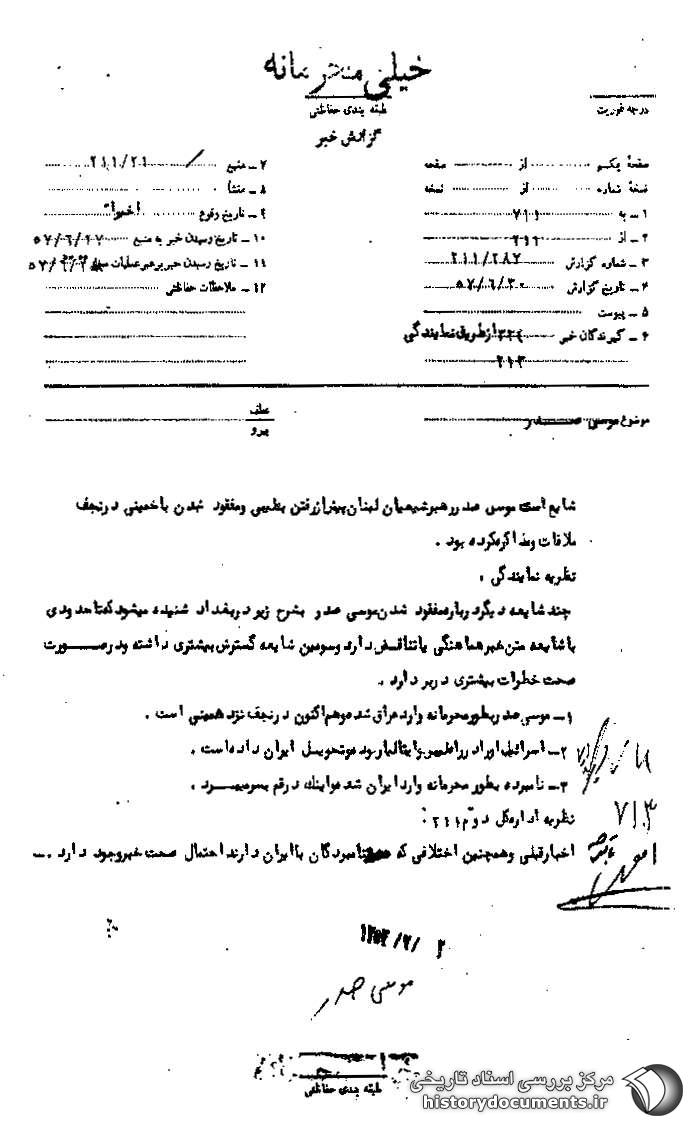 خیلی محرمانه
طبقه بندی حفاظتی
درجه فوریت
گزارش خبر
صفحهٔ یکم از صفحه
نسخهٔ شماره از نسخه
۱ – به ۷۱۱
۲ – از ۲۱۱
۳ – شماره گزارش ۲۱۱/۲۸۷
۴ – تاریخ گزارش ۵۷/۶/۳۰
۵ – پیوست
۶ – گیرندگان خبر ۳۳۴ از طریق نمایندگی
۲۱۳
۷ – منبع ۲۱۱/۲۱
۸ – منشأ
۹ – تاریخ وقوع اخیرا
۱۰ – تاریخ رسیدن خبر به منبع ۵۷/۶/۲۷
۱۱ – تاریخ رسیدن خبر برهبر عملیات ۵۷/۶/
۱۲ – ملاحظات حفاظتی
موضوع موسی صدر
عطف
پیرو
شایع است موسی صدر رهبر شیعیان لبنان پیش از رفتن بلیبی و مفقود شدن با خمینی در نجف
ملاقات و مذاکره کرده بود .
نظریه نمایندگی .
چند شایعه دیگر درباره مفقود شدن موسی صدر بشرح زیر در بغداد شنیده میشود که تا حدودی
با شایعه متن خبر هماهنگی یا تناقض دارد و سومین شایعه گسترش بیشتری داشته و در صورت
صحت خطرات بیشتری در بر دارد .
۱– موسی صدر بطور محرمانه وارد عراق شده و هم اکنون در نجف نزد خمینی است .
۲– اسرائیل او را در راه لیبی و ایتالیا ربوده و تحویل ایران داده است .
۳– نامبرده بطور محرمانه وارد ایران شده و اینک در قم بسر میبرد .
نظریه اداره کل دوم ۲۱۱ :
اخبار قبلی و همچنین اختلافی که نامبردگان با ایران دارند احتمال صحت خبر وجود دارد .–
۷۱۳
موسی صدر
طبقه بندی حفاظتی
مرکز بررسی اسناد تاریخی
historydocuments.ir